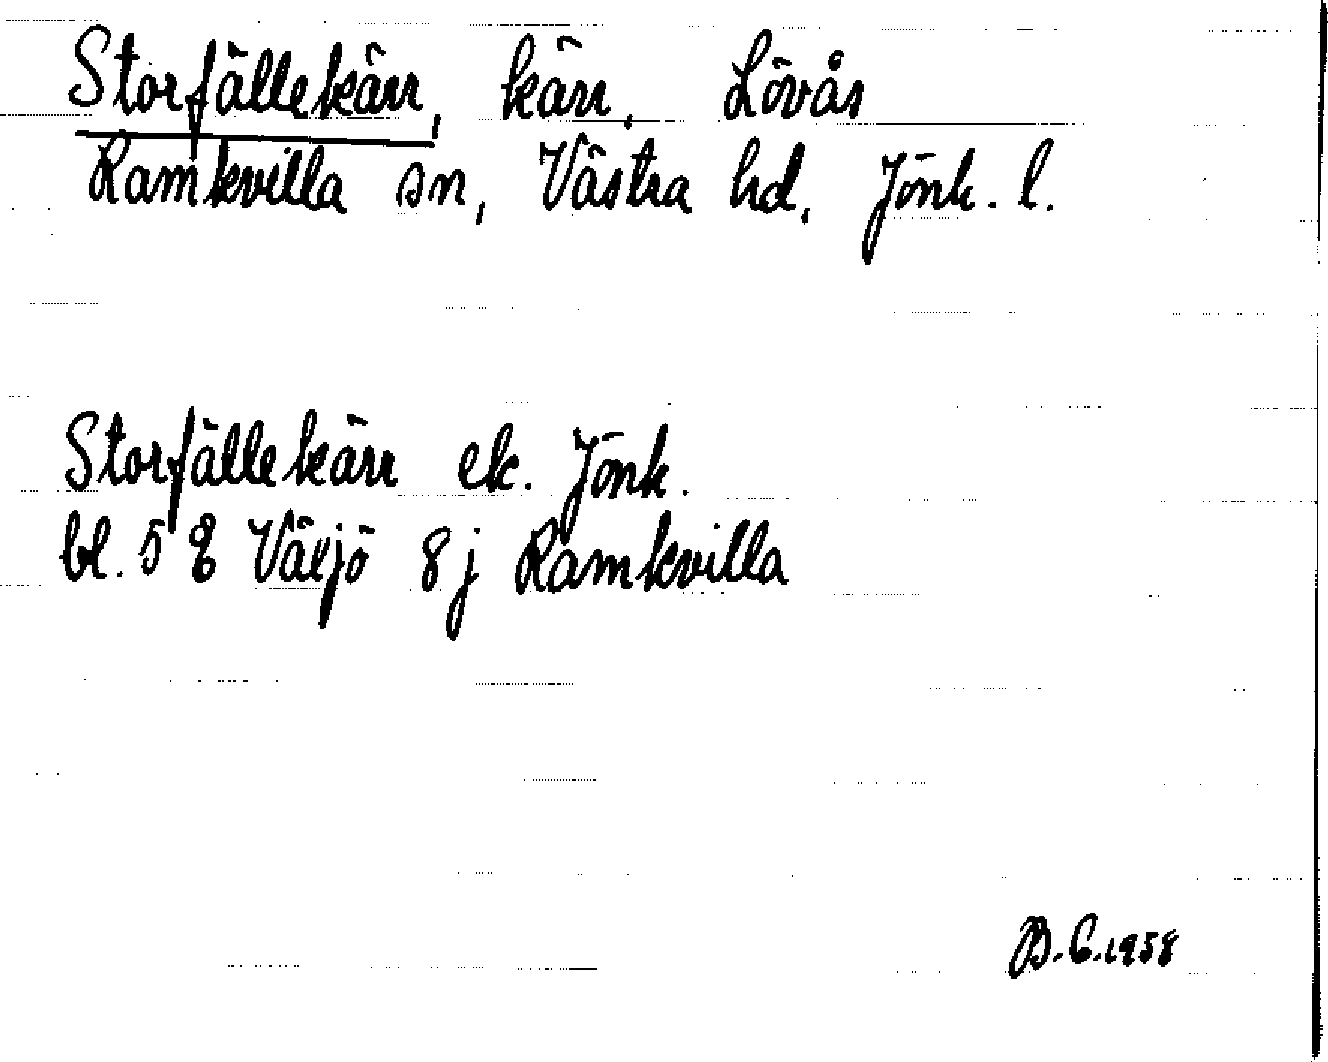 Storfällekärr, kärr, Lövås
Ramkvilla sn, Västra hd, Jönk. l.
Storfällekärr ek. Jönk.
bl. 5 8 Växjö 8j Ramkvilla
B.C.1958